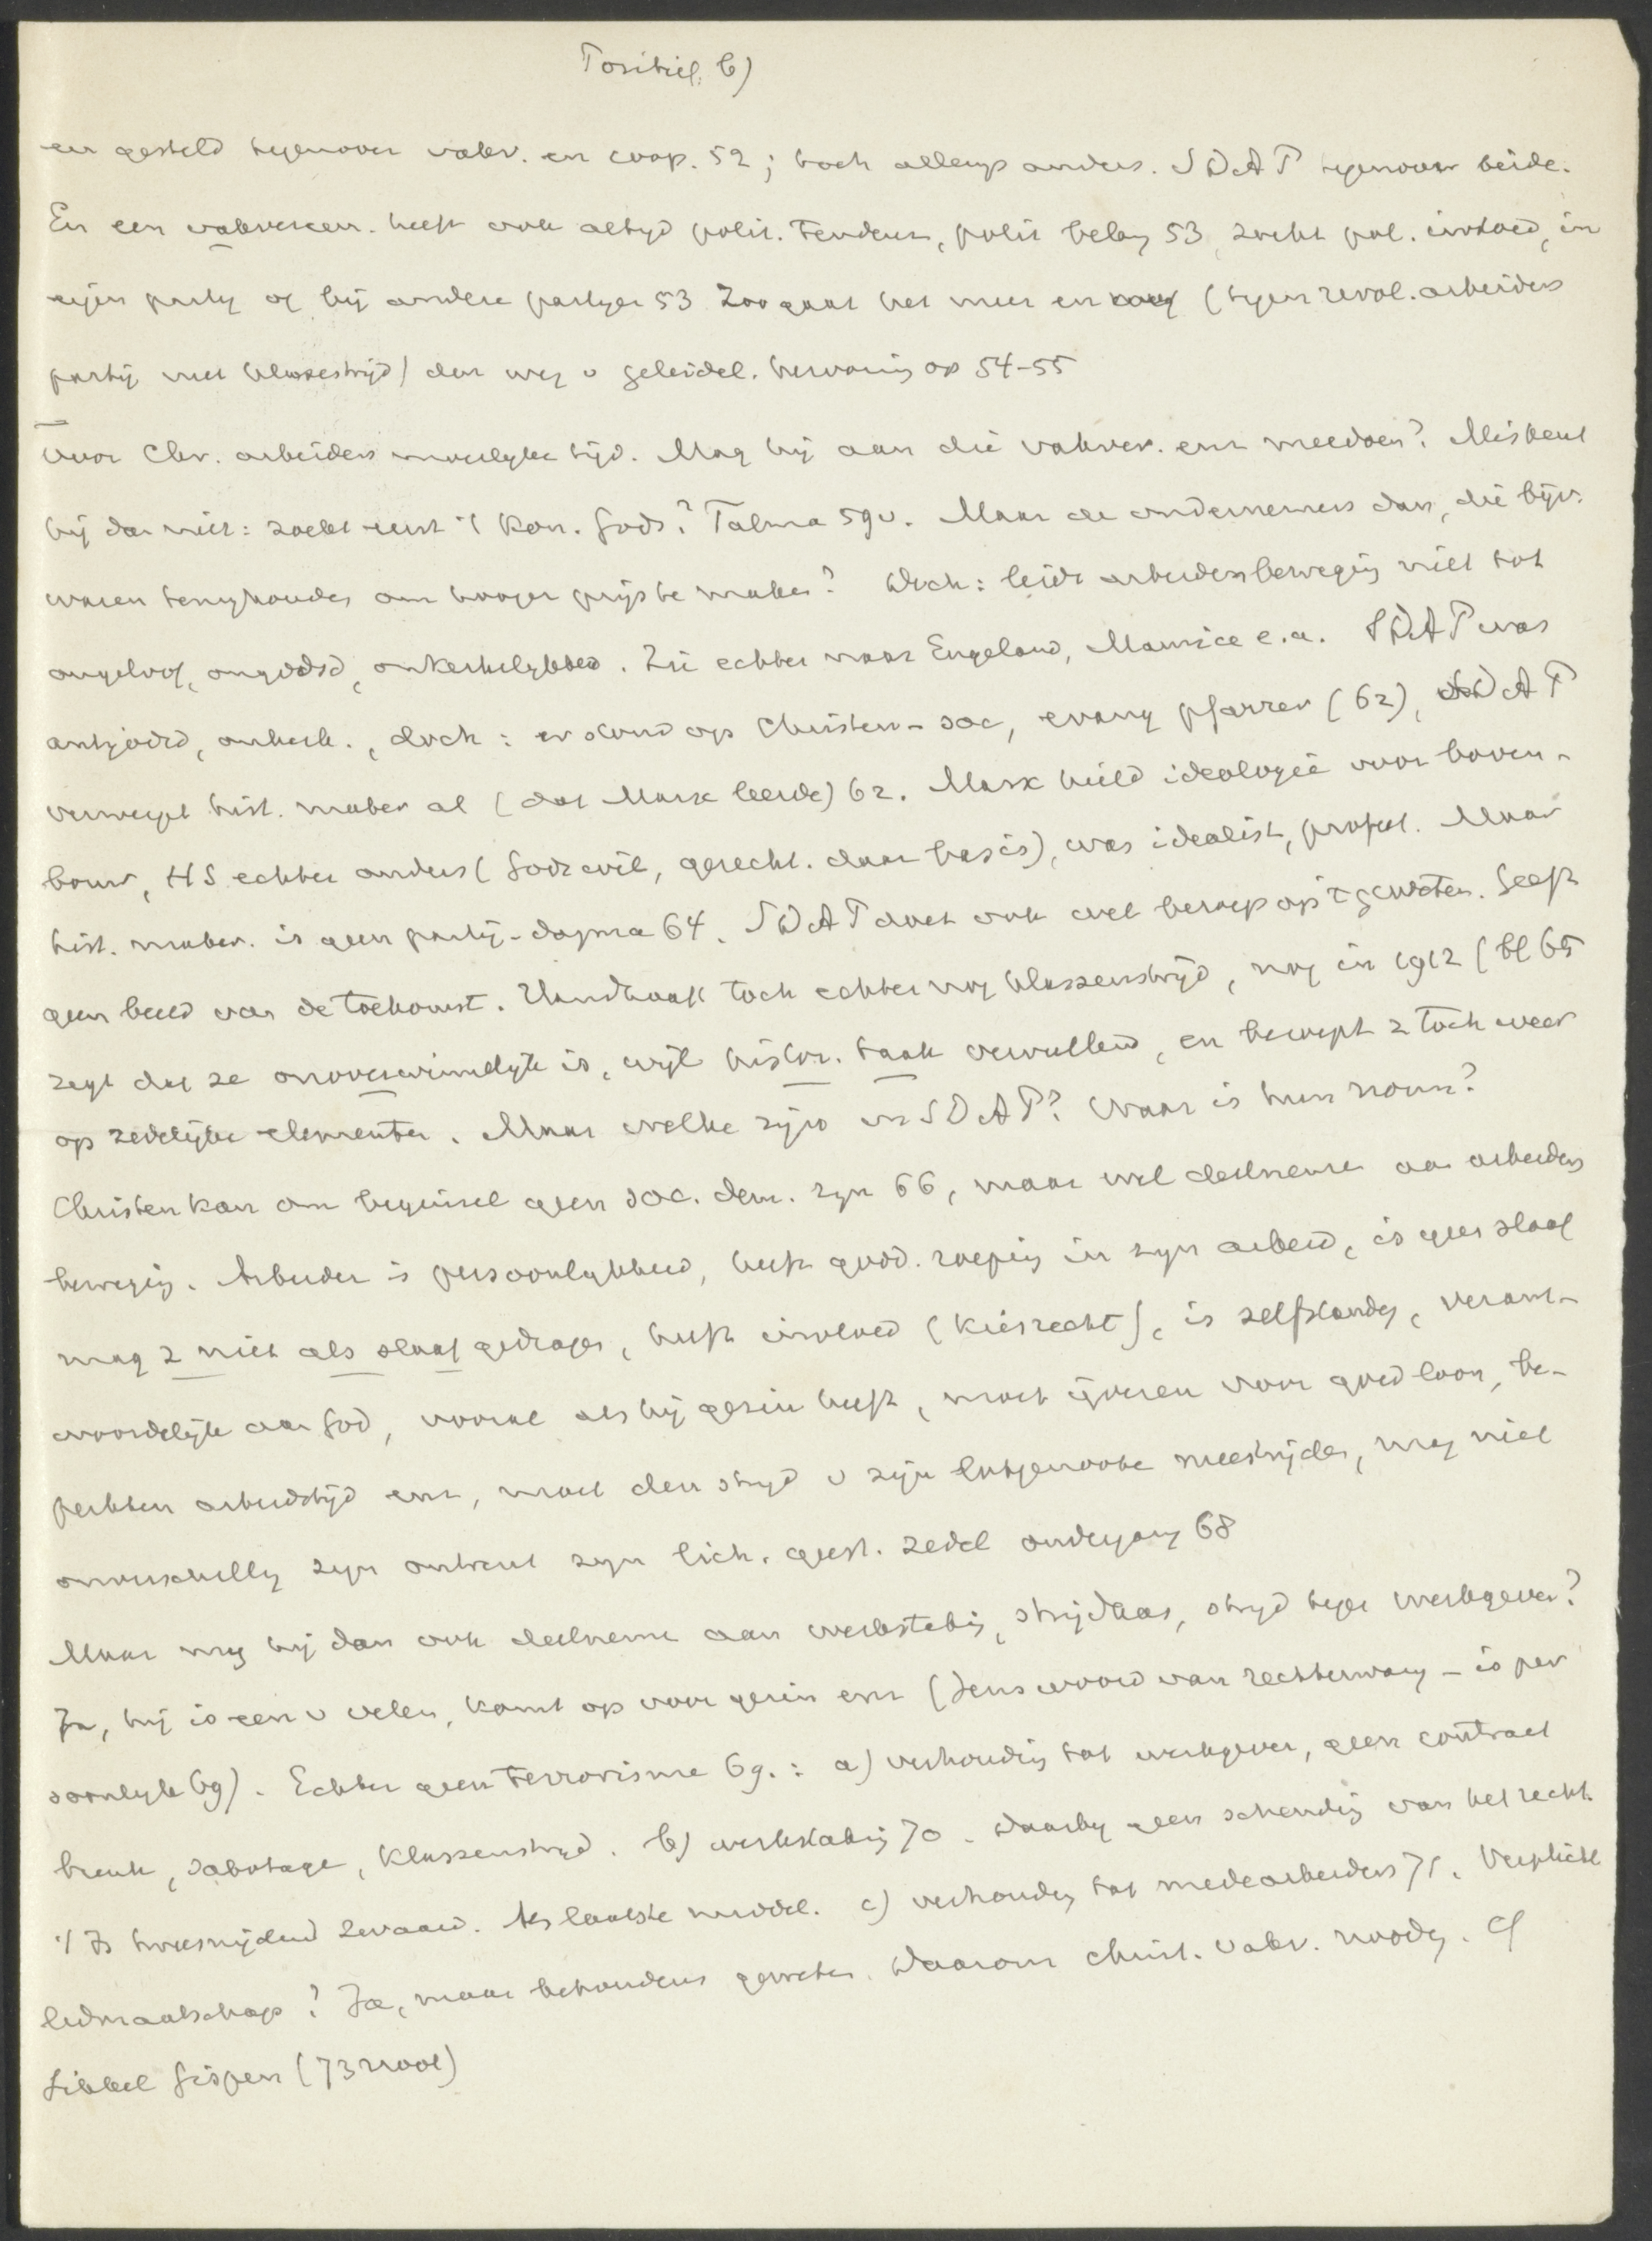 Positief. b)
en gesteld tegenover vakv. en coop. 52; toch allengs anders. SDAP tegenover beide.
En een vakvereen. heeft ook altyd polit. tendens, polit belang 53, zoekt pol. invloed, in
eigen party of bij andere partyen 53 Zoo gaat het meer en (tegen revol. arbeiders
partij met klassestrijd) den weg v geleidel. hervorming op 54-55
Voor Chr. arbeiders moeilyke tijd. Mag hij aan die vakver. enz meedoen? Miskent
hij dan niet: zoekt eerst 't Kon. Gods? Talma 59v. Maar de ondernemers dan, die bijv.
waren terughouden om hooger prijs te maken? Doch: leidt arbeidersbeweging niet tot
ongeloof, ongodsd, onkerkelykheid. Zie echter naar Engeland, Maurice e.a. SDAP was
antigodsd, onkerk., doch: er stond op Christen-soc, evang pfarrer (62), SDAP
verwerpt hist. mater al (dat Marx leerde) 62. Marx hield ideologie voor boven-
bouw, HS echter anders (Gods wil, gerecht. daar basis), was idealist, profeet. Maar
hist. mater. is geen partij-dogma 64. SDAP doet ook wel beroep op 't geweten. Geeft
geen beeld van de toekomst. Handhaaft toch echter nog klassenstrijd, nog in 1912 (bl 65
zegt dat ze onoverwinnelyk is, wijl histor. taak vervullend, en beroept z toch weer
op zedelijke elementen. Maar welke zijn in SDAP? Waar is hun norm?
Christen kan om beginsel geen soc. dem. zyn 66, maar wel deelnemen aan arbeiders
beweging. Arbeider is persoonlykheid, heeft godd. roeping in zyn arbeid, is geen slaaf
mag z niet als slaaf gedragen, heeft invloed (kiesrecht), is zelfstandig, verant-
woordelijk aan God, vooral als hij gezin heeft, moet ijveren voor goed loon, be-
perkten arbeidstijd enz, moet den stryd v zijn lotgenooten meestrijden, mag niet
onverschillig zyn omtrent zyn lich. geest. zedel ondergang 68
Maar mag hij dan ook deelnemen aan werkstaking, strijdkas, stryd tegen werkgever?
Ja, hij is een v velen, komt op voor gezin enz (Jens woord van rechtenwang - is per
soonlyk 69). Echter geen terrorisme 69.: a) verhouding tot werkgever, geen contract
breuk, sabotage, klassenstryd. b) werkstaking 70. daarby geen schending van het recht.
't Is tweesnijdend zwaard. Als laatste middel. c) verhouding tot medearbeiders 71. Verplicht
lidmaatschap? Ja, maar behoudens geweten. Daarom christ. vakv. noodig. Cf
Sikkel Gispen (73 noot)